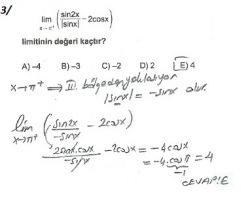 3/
lim x→π⁺ (sin2x/|sinx| − 2cosx)
limitinin değeri kaçtır?
A) −4 B) −3 C) −2 D) 2 E) 4
x→π⁺ ⟹ III. bölgeden yaklaşıyor
|sinx| = −sinx olur.
lim x→π⁺ (sin2x/−sinx − 2cosx)
2sinx.cosx/−sinx − 2cosx = −4cosx
= −4.cosπ = 4
−1
CEVAP:E